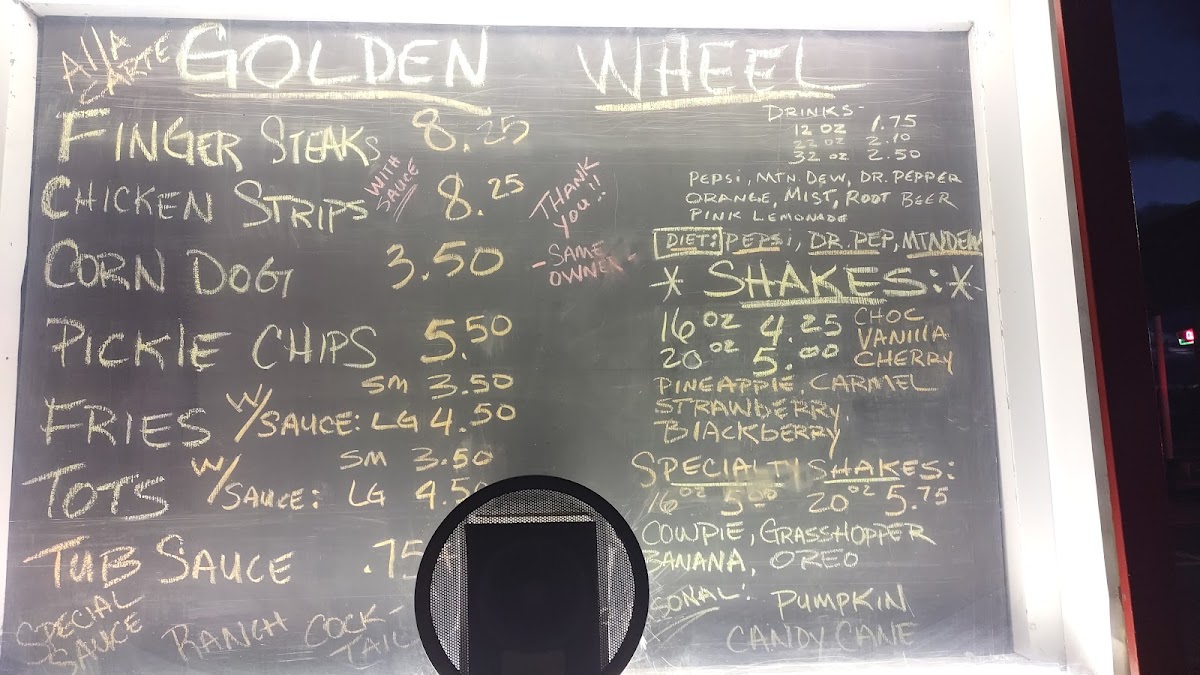 Alla
CARTE
GOLDEN WHEEL
FINGER STEAKS 8.25
CHICKEN STRIPS WITH SAUCE 8.25
CORN DOG 3.50
THANK
YOU!!
- SAME
OWNER -
PICKlE CHIPS 5.50
SM 3.50
FRIES W/SAUCE: LG 4.50
SM 3.50
TOTS W/SAUCE: LG 4.50
TUB SAUCE .75
SPECIAL
SAUCE
RANCH COCK-
TAIL
DRINKS-
12 OZ 1.75
22 OZ 2.10
32 OZ 2.50
PEPSi, MTN. DEW, DR. PEPPER
ORANGE, MIST, ROOT BEER
PINK LEMONADE
DIET: PEPSi, DR. PEP, MTNDEW
* SHAKES: *
16 OZ 4.25 CHOC
VANIllA
20 OZ 5.00 CHERRY
PINEAPPlE, CARMEL
STRAWBERRY,
BlACKBERRY
SPECIALTY SHAKES:
16 OZ 5.00 20 OZ 5.75
COWPIE, GRASSHOPPER
BANANA, OREO
SONAL: PUMPKIN
CANDY CANE